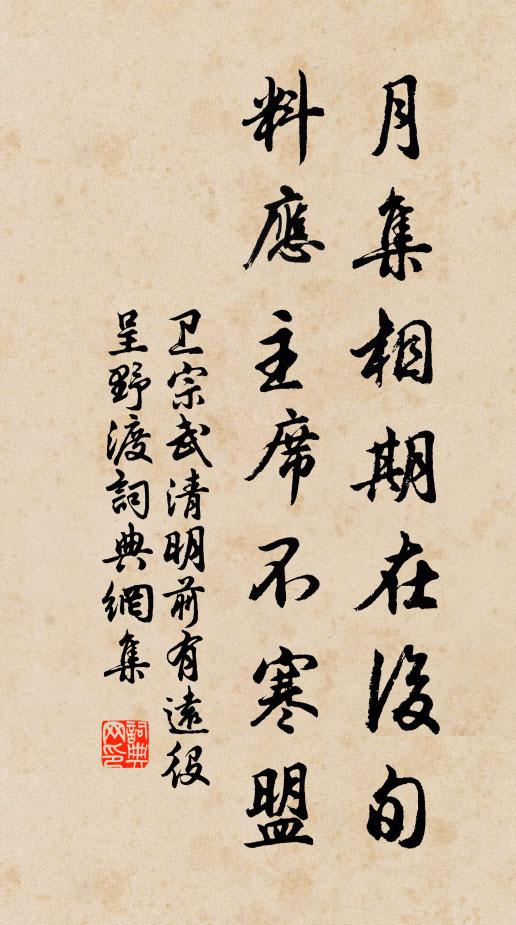 月集相期在後旬
料應主席不寒盟
卫宗武清明前有遠役
呈野渡詞典網集
詞典网印